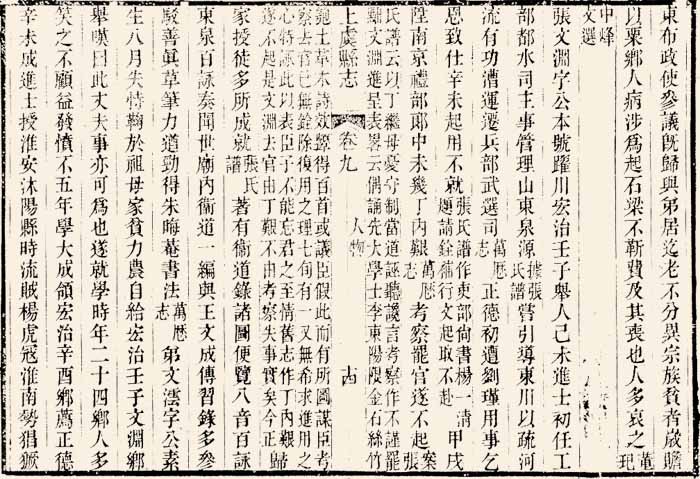 東布政使參議旣歸與弟居迄老不分異宗族貧者歲贍
以粟鄉人病涉爲起石梁不靳費及其喪也人多哀之董玘
中峰文選
張文淵字公本號躍川宏治壬子舉人己未進士初任工
部都水司主事管理山東泉源據張氏譜嘗引導東川以疏河
流有功漕運遷兵部武選司萬厯志正德初遭劉瑾用事乞
恩致仕辛未起用不就張氏譜作吏部尚書楊一清題請銓補行文起取不赴甲戌
陞南京禮部郎中未幾丁內艱萬厯志考察罷官遂不起案張
氏譜云以丁繼母憂守制當道誣聽讒言考察作不謹罷
黜文淵進呈表畧云偶誦先大學士李東陽隈金石絲竹
上虞縣志 卷九 人物 十四
匏土革木詩效顰得百首或議臣假此而有所圖謀臣考
察去官已無銓除復用之理七旬有一又無希求進用之
心特詠此以表臣子不能忘君之至情舊志作丁內艱
遂不起是文淵去官由丁艱不由考察失事實矣今正歸
家授徒多所成就張氏譜著有衞道錄諸圖便覽八音百詠
東泉百詠奏聞世廟內衞道一編與王文成傳習錄多參
駁善眞草筆力遒勁得朱晦菴書法萬厯志弟文澐字公素
生八月失恃鞠於祖母家貧力農自給宏治壬子文淵鄉
舉嘆曰此丈夫事亦可爲也遂就學時年二十四鄉人多
笑之不顧益發憤不五年學大成領宏治辛酉鄉薦正德
辛未成進士授淮安沐陽縣時流賊楊虎寇淮南勢猖獗